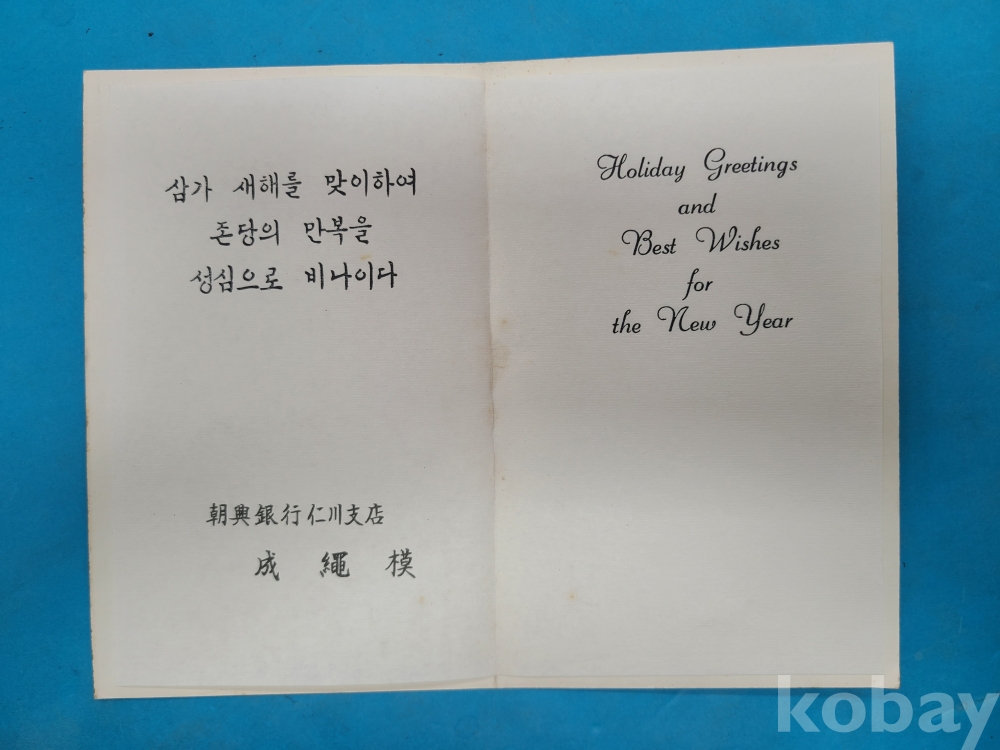 삼가 새해를 맞이하여
존당의 만복을
성심으로 비나이다
朝興銀行仁川支店
成 繩 模
Holiday Greetings
and
Best Wishes
for
the New Year
kobay